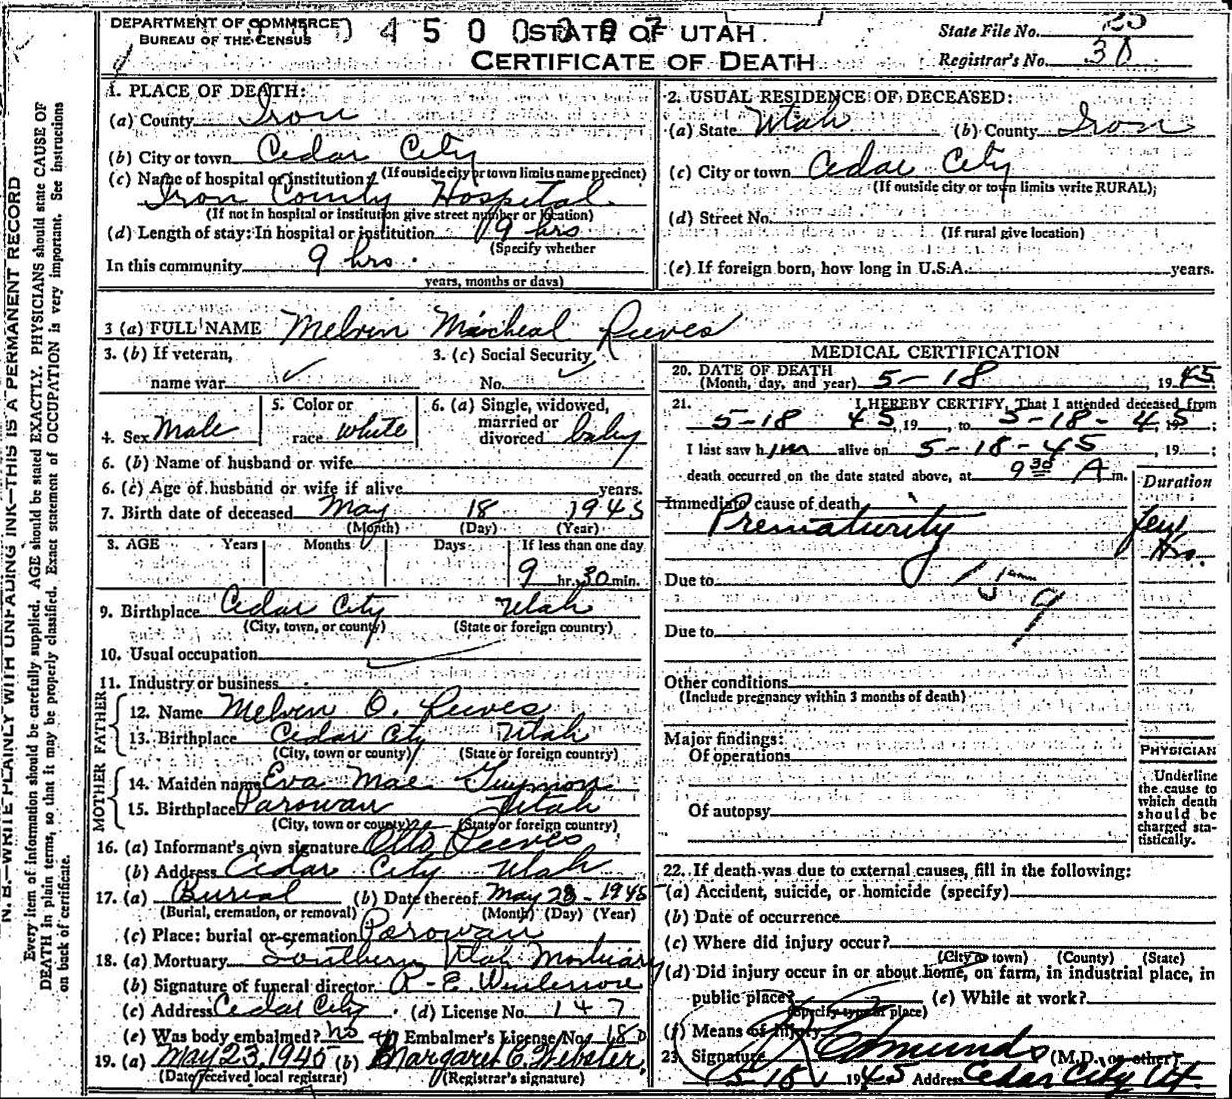 DEPARTMENT OF COMMERCE
BUREAU OF THE CENSUS
STATE OF UTAH
CERTIFICATE OF DEATH
State File No.
Registrar's No. 30
N. B.—WRITE PLAINLY WITH UNFADING INK—THIS IS A PERMANENT RECORD
Every item of information should be carefully supplied. AGE should be stated EXACTLY. PHYSICIANS should state CAUSE OF
DEATH in plain terms, so that it may be properly classified. Exact statement of OCCUPATION is very important. See instructions
on back of certificate.
1. PLACE OF DEATH:
(a) County Iron
(b) City or town Cedar City
(If outside city or town limits name precinct)
(c) Name of hospital or institution:
Iron County Hospital
(If not in hospital or institution give street number or location)
(d) Length of stay: In hospital or institution 9 hrs
(Specify whether
In this community 9 hrs.
years, months or days)
2. USUAL RESIDENCE OF DECEASED:
(a) State Utah (b) County Iron
(c) City or town Cedar City
(If outside city or town limits write RURAL);
(d) Street No.
(If rural give location)
(e) If foreign born, how long in U.S.A. years.
3 (a) FULL NAME Melvin Micheal Reeves
3. (b) If veteran,
name war
3. (c) Social Security
No.
4. Sex Male
5. Color or
race white
6. (a) Single, widowed,
married or
divorced baby
6. (b) Name of husband or wife
6. (c) Age of husband or wife if alive years.
7. Birth date of deceased May 18 1945
(Month) (Day) (Year)
8. AGE Years Months Days If less than one day
9 hr. 30 min.
9. Birthplace Cedar City Utah
(City, town, or county) (State or foreign country)
10. Usual occupation
11. Industry or business
FATHER
12. Name Melvin O. Reeves
13. Birthplace Cedar City Utah
(City, town or county) (State or foreign country)
MOTHER
14. Maiden name Eva Mae Guymon
15. Birthplace Parowan Utah
(City, town or county) (State or foreign country)
16. (a) Informant's own signature Otto Reeves
(b) Address Cedar City Utah
17. (a) Burial (b) Date thereof May 23 - 1945
(Burial, cremation, or removal) (Month) (Day) (Year)
(c) Place: burial or cremation Parowan
18. (a) Mortuary Southern Utah Mortuary
(b) Signature of funeral director R. E.
(c) Address Cedar City (d) License No. 147
(e) Was body embalmed? no Embalmer's License No. 180
19. (a) May 23, 1945 (b) Margaret C. Webster.
(Date received local registrar) (Registrar's signature)
MEDICAL CERTIFICATION
20. DATE OF DEATH
(Month, day, and year) 5-18, 1945
21. I HEREBY CERTIFY, That I attended deceased from
5-18 45, 19 , to 5-18-45, 19 ;
I last saw him alive on 5-18-45, 19 ;
death occurred on the date stated above, at 9 30 A m.
Duration
Immediate cause of death
Prematurity few
Hrs.
Due to 159
Due to
Other conditions
(Include pregnancy within 3 months of death)
Major findings:
Of operations
Of autopsy
PHYSICIAN
Underline
the cause to
which death
should be
charged sta-
tistically.
22. If death was due to external causes, fill in the following:
(a) Accident, suicide, or homicide (specify)
(b) Date of occurrence
(c) Where did injury occur?
(City or town) (County) (State)
(d) Did injury occur in or about home, on farm, in industrial place, in
public place? (e) While at work?
(Specify type of place)
(f) Means of injury
23. Signature Edmunds (M.D. or other)
5-18 1945 Address Cedar City Ut.